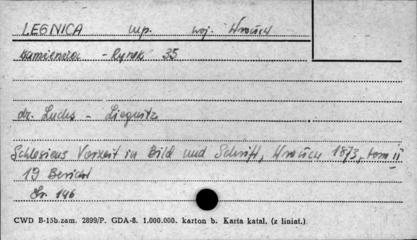 LEGNICA mp. woj. Wrocław
Kamienica - Rynek 35
dr. Luchs - Liegnitz
Schlesiens Vorzeit in Bild und Schrift, Wrocław 1873, tom II
19 Bericht
Str. 146
CWD B-15b.zam. 2899/P. GDA-8. 1.000.000. karton b. Karta katal. (z liniat.)